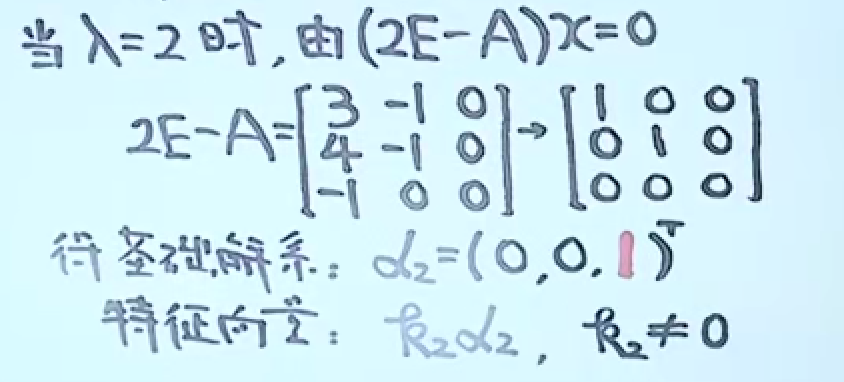 当λ=2时,由(2E-A)x=0
2E-A=[3 -1 0; 4 -1 0; -1 0 0]→[1 0 0; 0 1 0; 0 0 0]
得基础解系:α₂=(0,0,1)ᵀ
特征向量:k₂α₂,k₂≠0